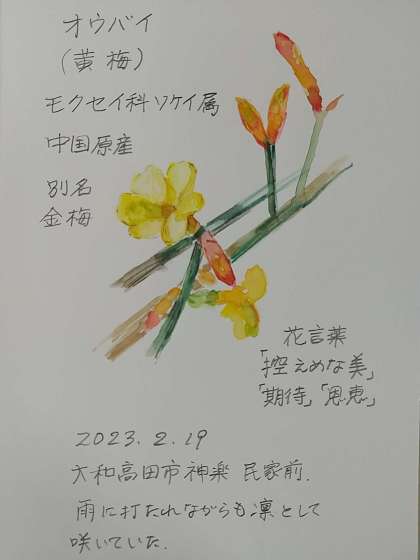 オウバイ
(黄梅)
モクセイ科ソケイ属
中国原産
別名
金梅
花言葉
「控えめな美」
「期待」「恩恵」
2023.2.19
大和高田市神楽 民家前.
雨に打たれながらも凛として
咲いていた.